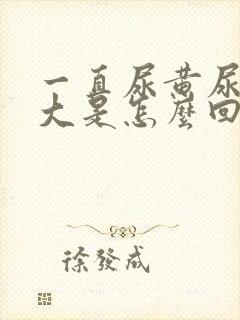 一直尿黄尿
大是怎麼回
徐發成